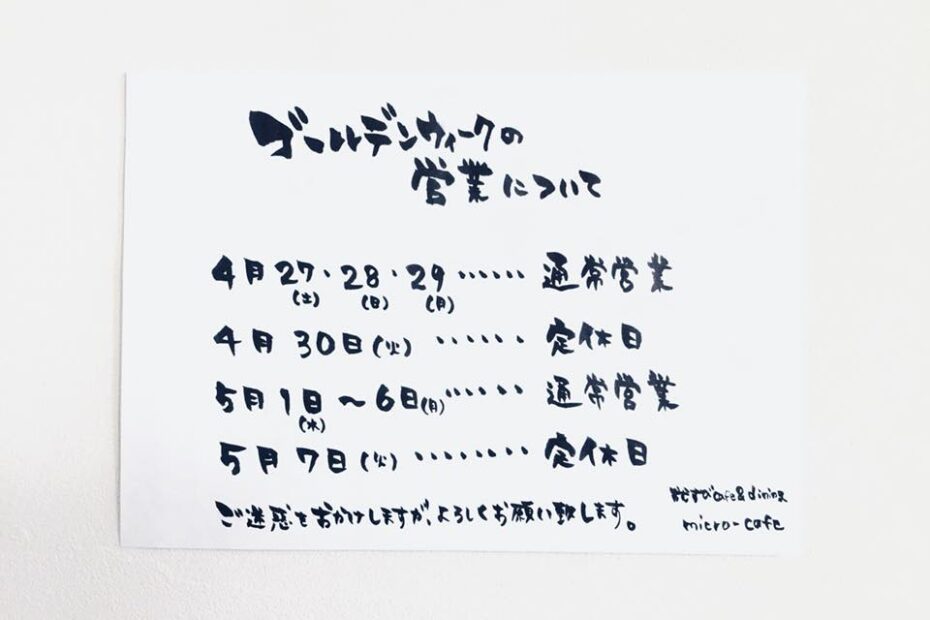 ゴールデンウィークの
営業について
4月27・28・29……通常営業
(土) (日) (月)
4月30日(火)……定休日
5月1日〜6日(月)……通常営業
(水)
5月7日(火)………定休日
ご迷惑をおかけしますが、よろしくお願い致します。
おむすびcafe&dining
micro-cafe